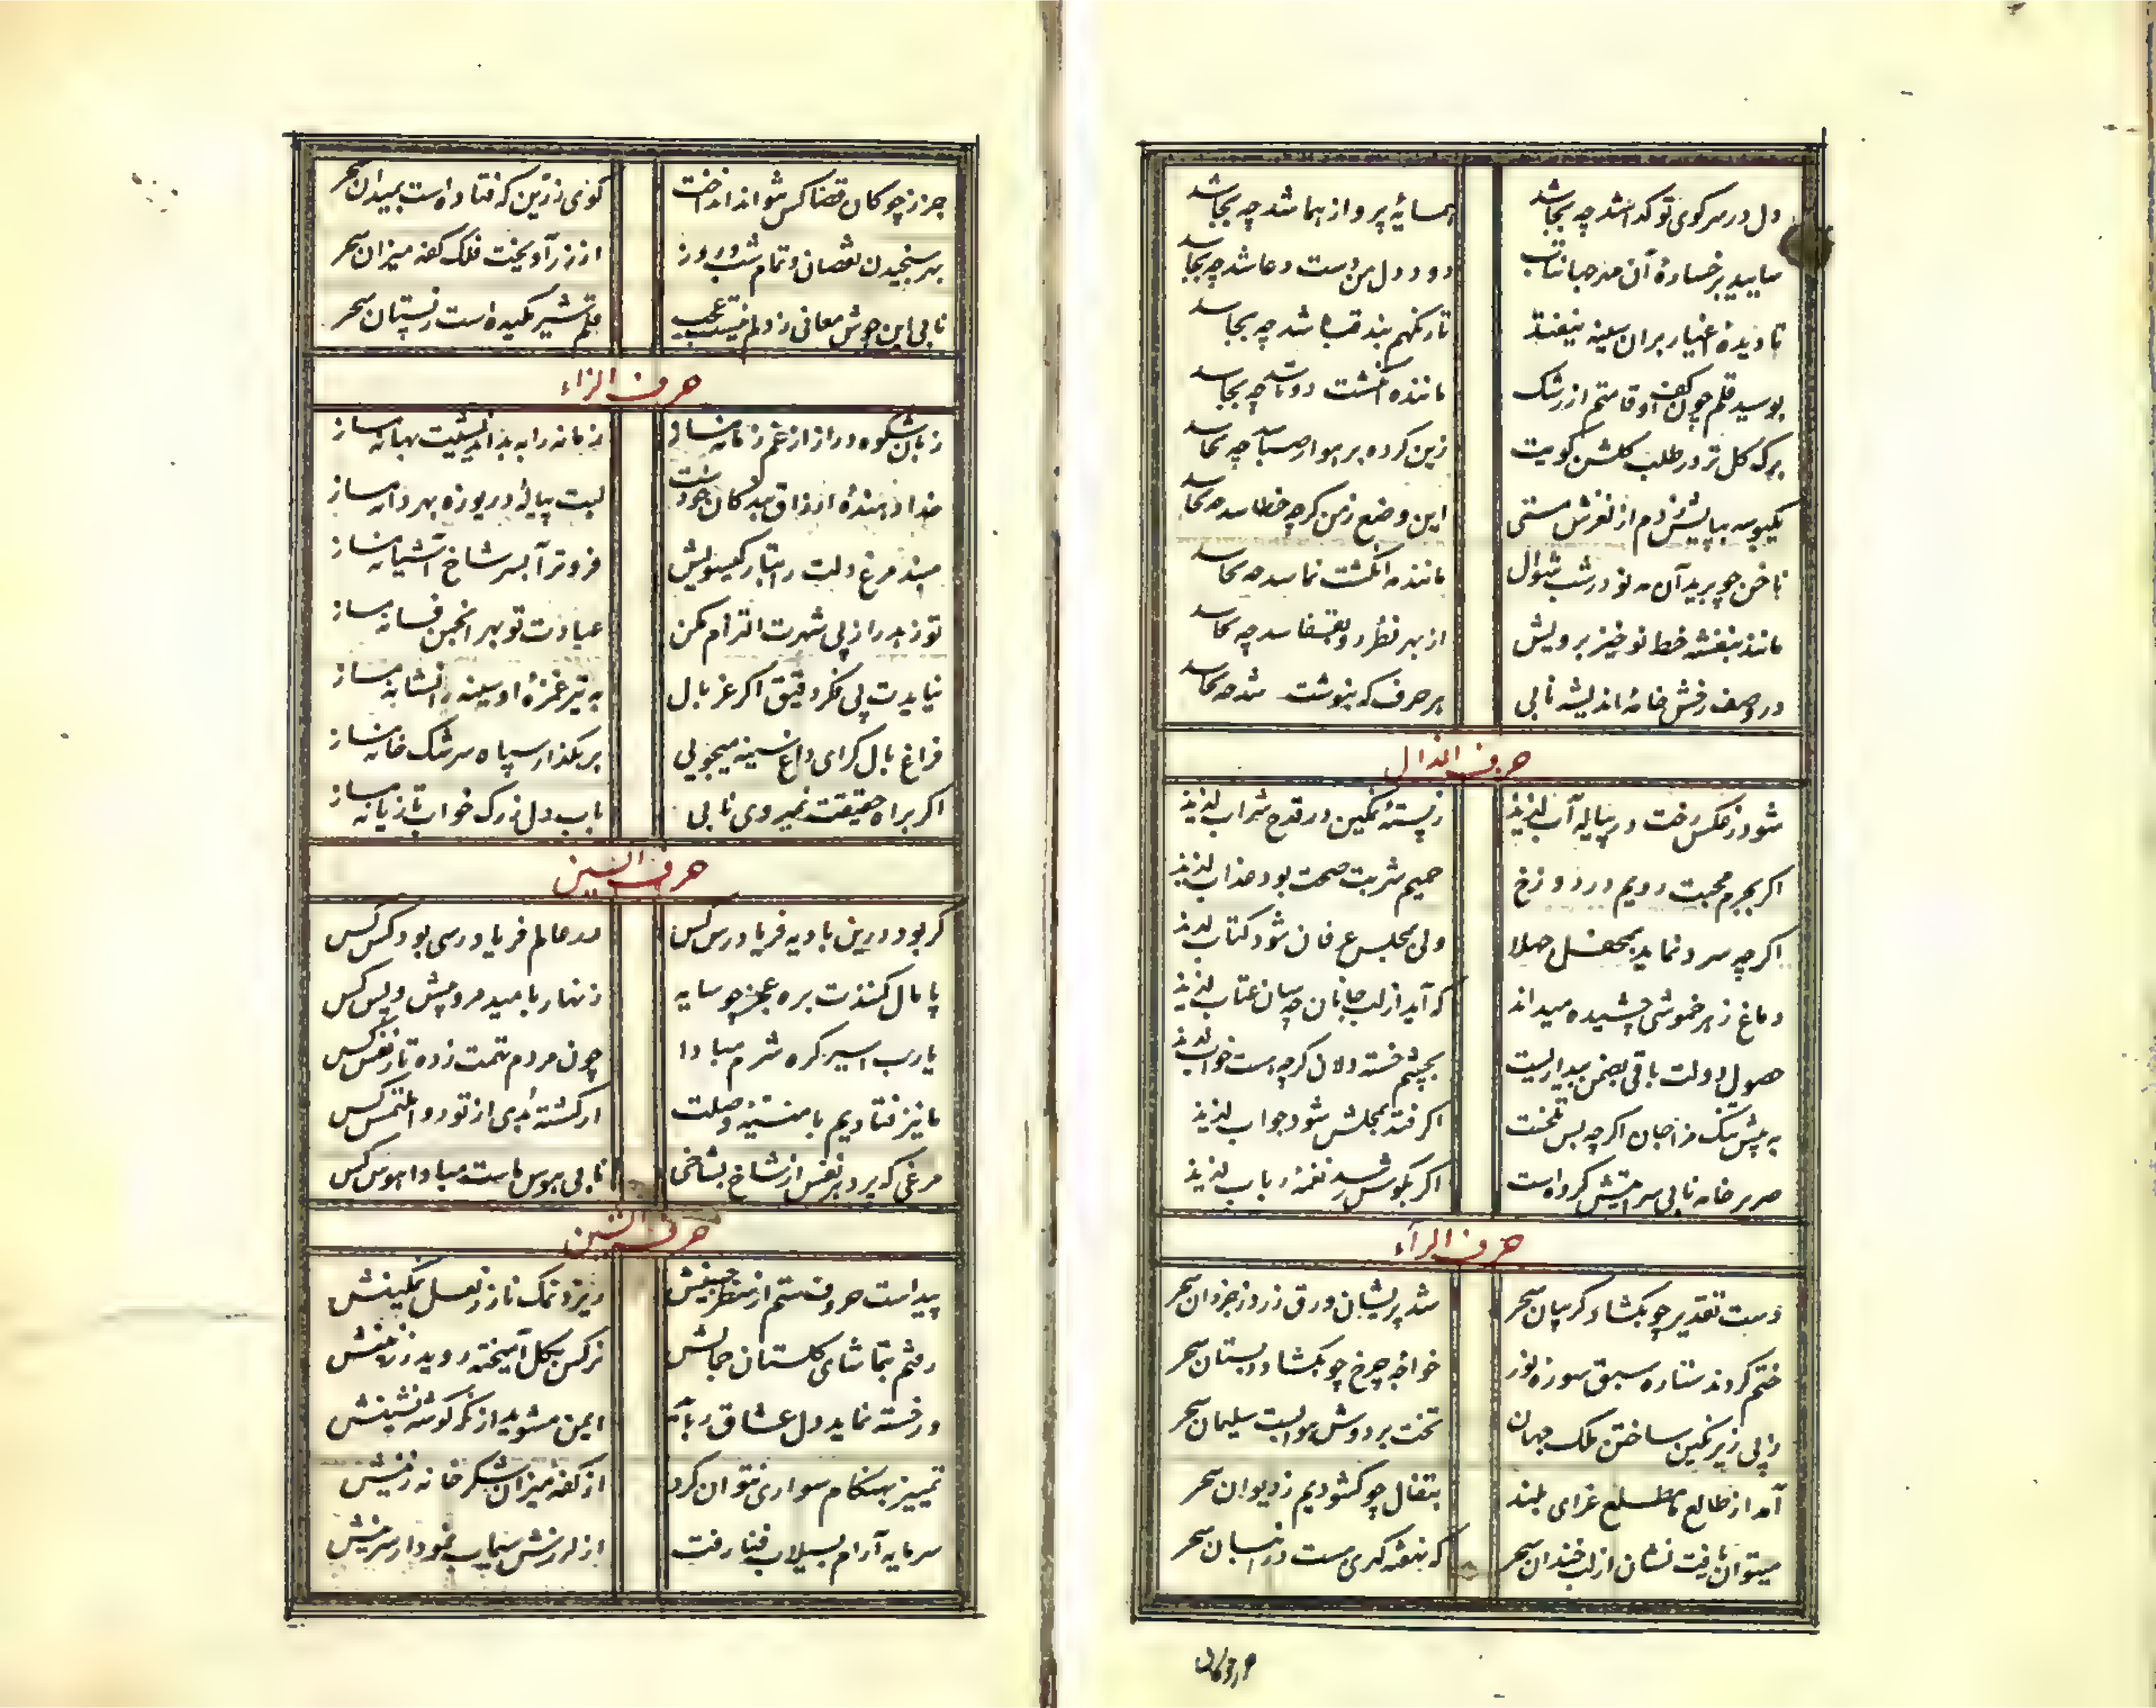 دل در سر کوی تو کدا شد چه بجا شد همسایهٔ پرواز هما شد چه بجا شد
سایید برخسارهٔ آن مه جبا دود دل من دست دعا شد چه بجا شد
تا دیدهٔ اغیار بران سینه نیفتد تار نکهم بند قبا شد چه بجا شد
بوسید قلم چون کف او قامتم از رشک ماننده انکشت دوتا شد چه بجا شد
برک کل تر در طلب کلشن کویت زین کرده بر هوار صبا چه بجا شد
یکبوسه بپایش زدم از لغزش مستی این وضع زمن کرچه خطا شد چه بجا شد
ناخن چو برید آن مه نو در شب شوال ماننده انکشت نما شد چه بجا شد
مانند بنفشه خط نو خیز برویش از بهر نظر رو بقفا شد چه بجا شد
در وصف رخش خامهٔ اندیشه نابی هر حرف که بنوشت شد چه بجا شد
حرف الذال
شود ز عکس رخت در پیاله آب لذیذ ز پستهٔ نمکین در قدح شراب لذیذ
اکر بجرم محبت رویم در دوزخ حمیم شربت صحت بود عذاب لذیذ
اکرچه سرد نماید بمحفل جهلا ولی بمجلس عرفان شود کتاب لذیذ
دماغ زهر خموشی چشیده میداند که آید از لب جانان چه سان عتاب لذیذ
حصول دولت باقی بضمن بیداریست بچشم خسته دلان کرچه است خواب لذیذ
به پیش تنک مزاجان اکرچه بس تلخست اکر فتد بمجلش شود جواب لذیذ
صریر خامه نابی سرایتش کرده است اکر بکوش رسد نغمهٔ رباب لذیذ
حرف الرآء
دست تقدیر چو بکشاد کریبان سحر شد پریشان ورق زر ز جزدان سحر
ختم کردند ستاره سبق سوره نور خواجه چرخ چو بکشاد دبستان سحر
از پی زیر نکین ساختن ملک جهان تخت بر دوش هوا بست سلیمان سحر
آمد از طالع ما مطلع غرای بلند بتفال چو کشودیم ز دیوان سحر
میتوان یافت نشان از لب خندان سحر که بنقته کری هست در انسان سحر
جز ز چوکان قضا کس نتواند انداخت کوی زرین که فتاده است بمیدان سحر
بهر سنجیدن نقصان و تمام شب و روز از زر آویخت فلک کفه میزان سحر
نابی این جوش معانی ز دلم نیست عجب قلمم شیر مکیده است ز پستان سحر
حرف الزاء
زبان شکوه دراز از غم زمانه مساز زمانه را به بد اندیشیت بهانه مساز
خدا دهندهٔ ارزاق بندکان خودست لبت پیالهٔ دریوزه بهر دانه مساز
مبند مرغ دلت را بتار کیسویش فروتر آ بسر شاخ آشیانه مساز
تو زهد را ز پی شهرت التزام مکن عبادت تو بهر انجمن فسانه مساز
نیایدت پی فکر دقیق اکر غربال به تیر غمزهٔ او سینه را نشانه مساز
فراغ بال کر ای داغ سینه میجویی بر بکذار سپاه سرشک خانه مساز
اکر براه حقیقت نمیروی نابی باب دل زرک خواب تازیانه مساز
حرف السین
کر بود درین بادیه فریادرس کس در عالم فریاد رسی بود کس کس
پامال کنندت بره عجز چو سایه زنهار بامید مرو پیش و پس کس
یارب اسیر کره شرم مبادا چون مردم تهمت زده تار نفس کس
ما نیز فتادیم بامنیهٔ وصلت ار کشته بدی از تو روا ملتمس کس
مرغی که پرد هر نفس از شاخ بشاخی نابی هوس ماست مبادا هوس کس
حرف الشین
پیداست حروف ستم از سطر جبینش ریزد نمک ناز ز لعل نمکینش
رفتم بتماشای کلستان جمالش نرکس بکل آمیخته روید ز زمینش
وز خسته نماید دل عشاق ربا ایمن مشوید از نکه کوشه نشینش
تمییز بهنکام سواری نتوان کرد از کفه میزان شکر خانه زینش
سرمایه آرام بسیلاب فنا رفت از لرزش سیماب نمودار سرینش
جز ز چوکان